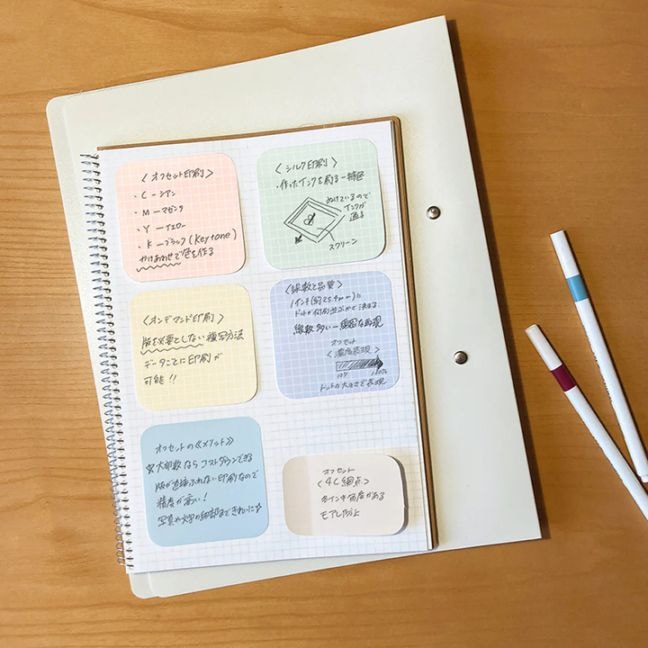 〈オフセット印刷〉
・C ー シアン
・M ー マゼンタ
・Y ー イエロー
・K ー ブラック(Keytone)
かけあわせで色を作る
〈シルク印刷〉
・インクを刷る
ぬけているので
インクが
通る
スクリーン
〈オンデマンド印刷〉
版を必要としない複写方法
データごとに印刷が
可能!!
〈線数と品質〉
1インチ(約25.4mm)に
ドットが何個並ぶかで決まる
線数多い ー 綺麗な表現
オフセット
〈濃度表現〉
100%
ドットの大きさで表現
オフセットの《メリット》
大部数なら コストダウンできる
版が直接ふれない印刷なので
精度が高い!
写真や文字の細部まできれいに
オフセット
〈4C網点〉
各インキ角度がある
モアレ防止